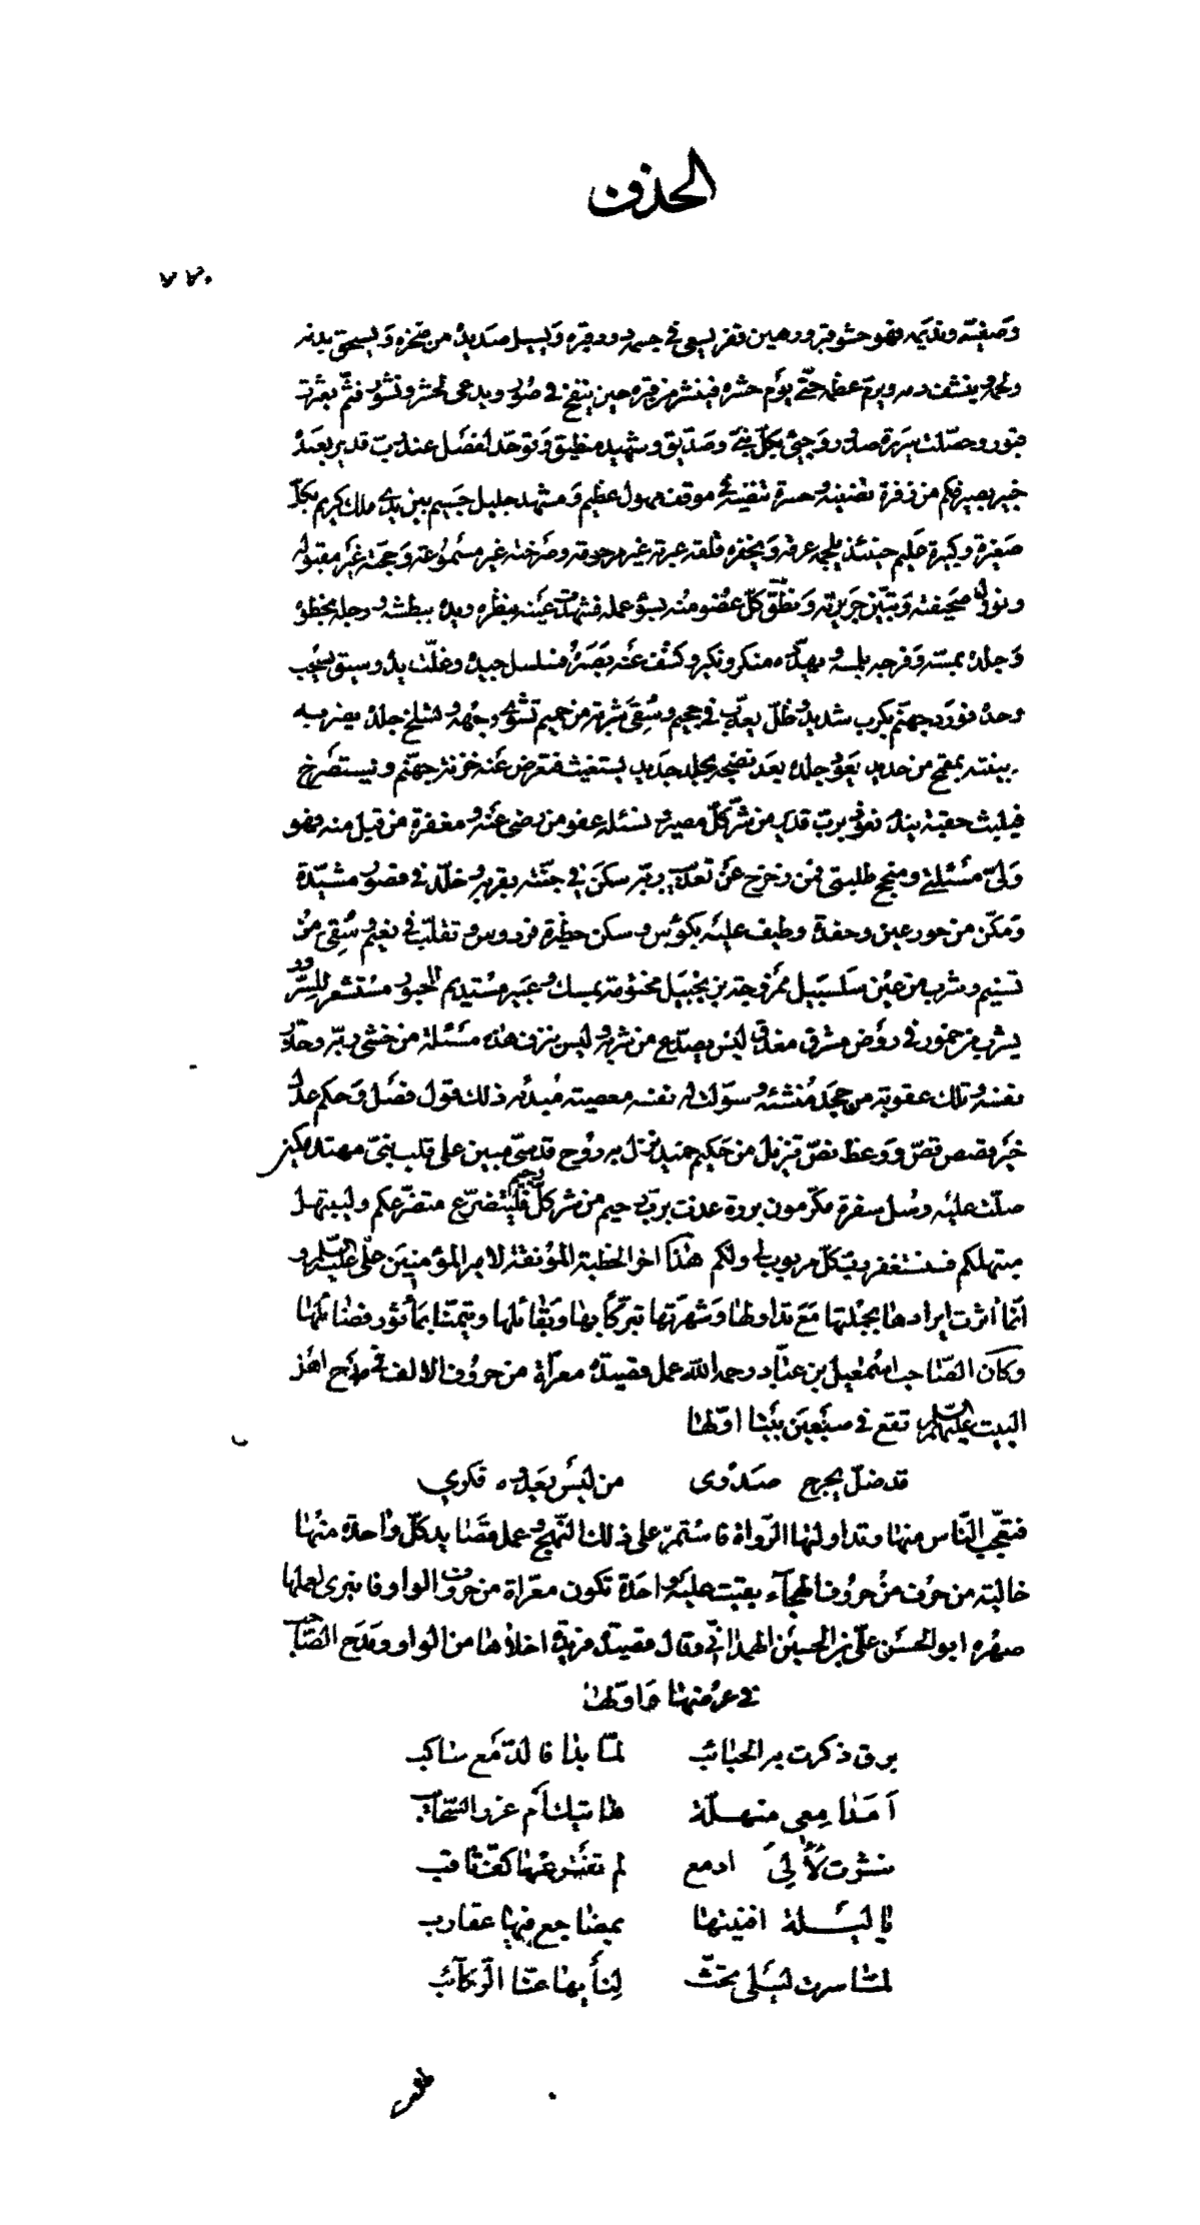 الحذف
٧٧٠
وصفيّه ونديمه فهو حشو قبر ورهين قفر يسعى في جسمه دود قبره ويسيل صديده من منخره ويسحق بدنه
ولحمه وينشف دمه ويرم عظمه حتى يوم حشره فينشر من قبره حين ينفخ في صور ويدعى لحشر ونشور فثم بعثرت
قبور وحصلت سريرة صدور وجيئ بكل نبي وصديق وشهيد منطيق وتوحد لفصل عند رب قدير بعبده
خبير بصير فكم من زفرة تضنيه وحسرة تنضيه في موقف مهول عظيم ومشهد جليل جسيم بين يدي ملك كريم بكل
صغيرة وكبيرة عليم حينئذ يلجمه عرقه ويخفره قلقه عبرته غير مرحومة وصرخته غير مسموعة وحجته غير مقبولة
وتول صحيفته وتبين جريرته ونطق كل عضو منه بسوء عمله فشهدت عينه بنظره ويده ببطشه ورجله بخطوه
وجلده بمسه وفرجه بلمسه ويهدده منكر ونكير وكشف عنه بصره فسلسل جيده وغلت يده وسيق يسحب
وحده فورد جهنم بكرب شديد وظل يعذب في جحيم وسقي شربة من حميم تشوي وجهه وتسلخ جلده يضربه
زبينته بمقمع من حديد يعود جلده بعد نضجه بجلد جديد يستغيث فتعرض عنه خزنة جهنم ويستصرخ
فيلبث حقبة بندم نعوذ برب قدير من شر كل مصير ونسئله عفو من رضي عنه ومغفرة من قبل منه فهو
ولي مسئلتي ومنجح طلبتي فمن زحزح عن تعذيب ربه سكن في جنته بقربه وخلد في قصور مشيدة
ومكن من حور عين وحفدة وطيف عليه بكؤس وسكن حظيرة فردوس وتقلب في نعيم وسقي من
تسنيم وشرب من عين سلسبيل ممزوجة بزنجبيل مختومة بمسك وعبير مستديم للحبور مستشعر للسرور
يشرب من خمور في روض مشرق مغدق ليس يصدع من شربه وليس ينزف هذه مسئلة من خشي ربه وحذر
نفسه وتلك عقوبة من جحد منشئه وسولت له نفسه معصية مبدئه ذلك قول فصل وحكم عدل
خبر قصص قص ووعظ نص تنزيل من حكيم حميد نزل به روح قدس مبين على قلب نبي مهتد مكين
صلت عليه رسل سفرة مكرمون بررة عذت برب رحيم من شر كل رجيم فليتضرع متضرعكم وليبتهل
مبتهلكم فسنستغفر رب كل مربوب لي ولكم هذا اخر الخطبة المؤنقة لامير المؤمنين عليه السلام و
انما أثرت ايرادها بجملتها مع تداولها وشهرتها تبركا بها وبقائلها وتيمنا بمأثور فضائلها
وكان الصاحب اسمعيل بن عباد رحمه الله عمل قصيدة معراة من حروف الالف في مدح اهل
البيت عليهم السلام تقع في سبعين بيتا اولها
قد ضل يجرح صدري من ليس يعدوه فكري
فتعجب الناس منها وتداولتها الرواة فاستمر على ذلك النهج وعمل قصايد كل واحدة منها
خالية من حرف من حروف الهجاء وبقيت عليه واحدة تكون معراة من حروف الواو فانبرى لعملها
صهره ابو الحسن علي بن الحسين الهمداني وقال قصيدة فريدة اخلاها من الواو ومدح الصاحب
في عرضها واولها
برق ذكرت به الحبائب لما بدا فالدمع ساكب
أمدامعي منهلة هاتيك أم غزر السحائب
نثرت لألئ ادمع لم تفترعها كف ثاقب
يا ليلة افنيتها بمضاجع فيها عقارب
لما سرت ليلى تخث لنأيها عنا الركائب